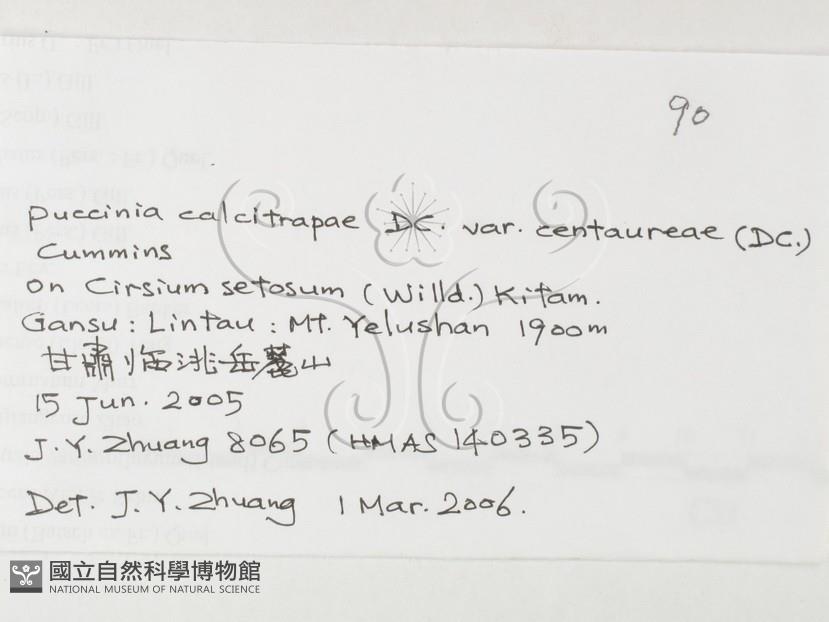 90
Puccinia calcitrapae DC. var. centaureae (DC.)
Cummins
on Cirsium setosum (Willd.) Kitam.
Gansu : Lintau : Mt. Yelushan 1900m
甘肅臨洮岳麓山
15 Jun. 2005
J. Y. Zhuang 8065 (HMAS 140335)
Det. J. Y. Zhuang 1 Mar. 2006.
國立自然科學博物館
NATIONAL MUSEUM OF NATURAL SCIENCE